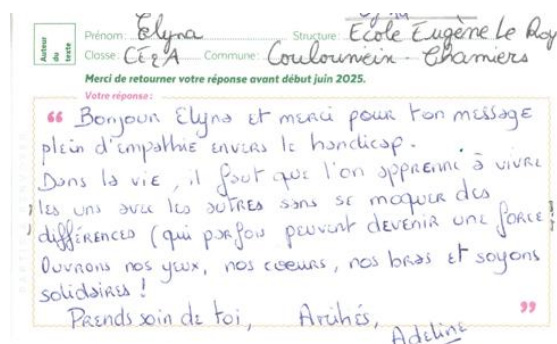 Auteur du texte
Prénom : Elyna Structure : Ecole Eugène Le Roy
Classe : CE2A Commune : Coulounieix - Chamiers
Merci de retourner votre réponse avant début juin 2025.
Votre réponse :
“ Bonjour Elyna et merci pour ton message
plein d'empathie envers le handicap.
Dans la vie, il faut que l'on apprenne à vivre
les uns avec les autres sans se moquer des
différences (qui parfois peuvent devenir une force
Ouvrons nos yeux, nos coeurs, nos bras et soyons
solidaires !
Prends soin de toi,
Adeline ”